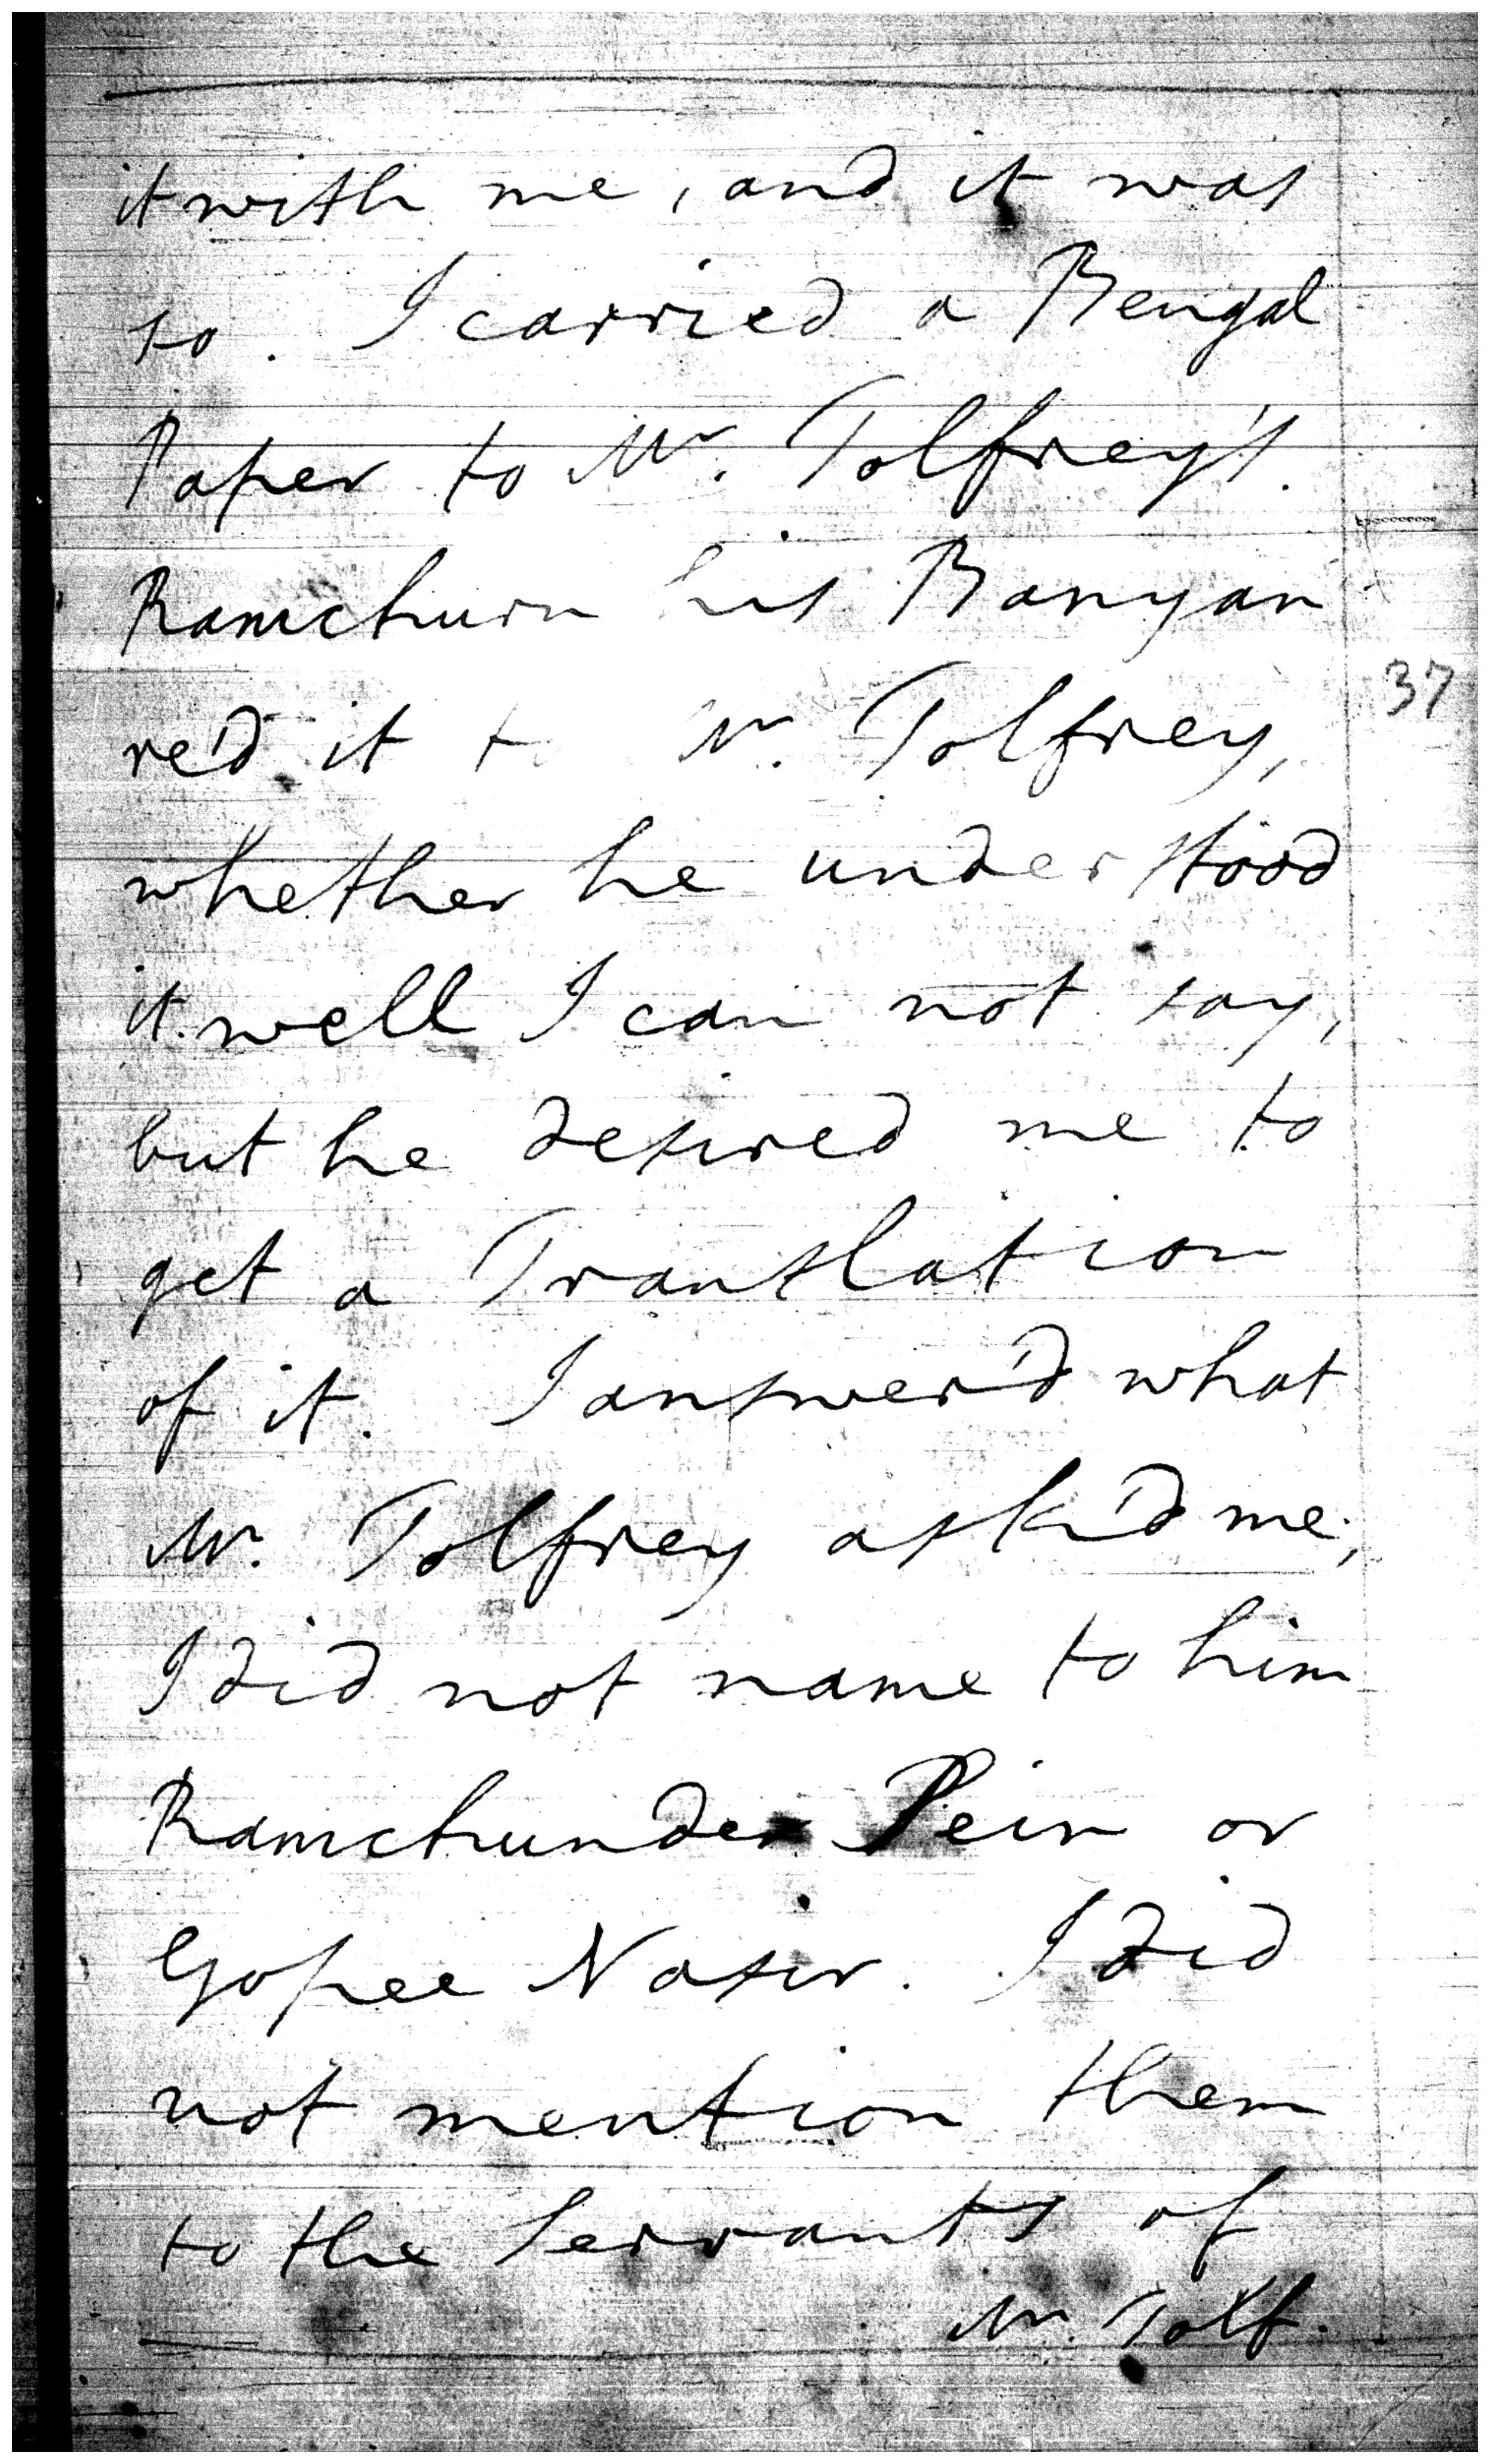 it with me, and it was
so. I carried a Bengal
Paper to Mr. Tolfrey's.
Ramchurn his Banyan
red it to Mr. Tolfrey,
37
whether he understood
it well I can not say,
but he desired me to
get a Translation
of it. I answer'd what
Mr. Tolfrey ask'd me;
I did not name to him
Ramchunder Sein or
Gopee Nasir. I did
not mention them
to the Servants of
Mr. Tolf.